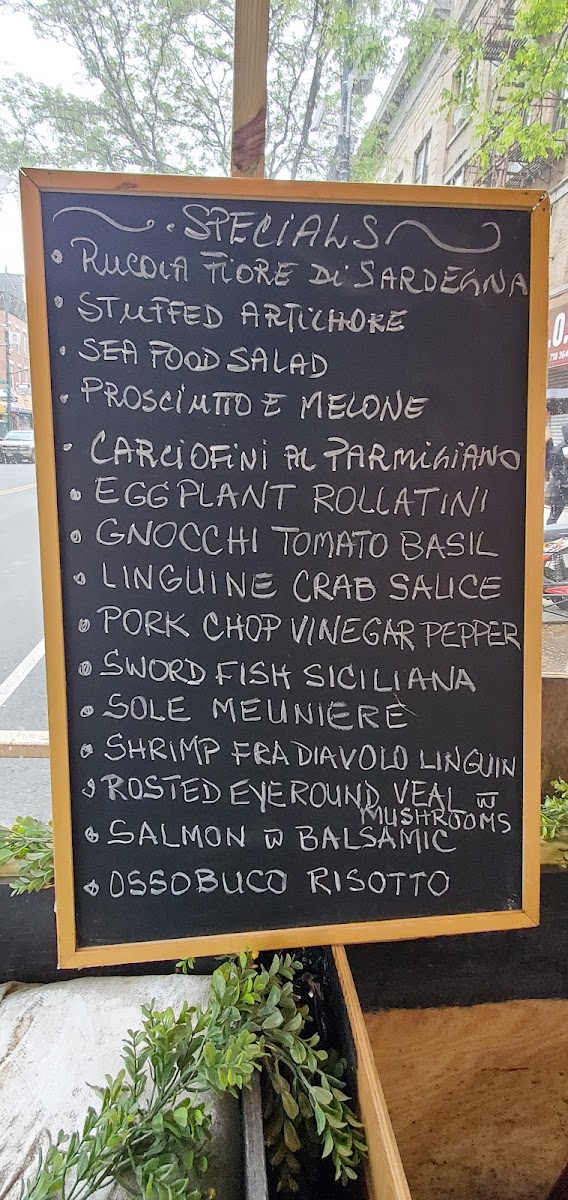 SPECIALS
• RUCOLA FIORE Di SARDEGNA
• STUFFED ARTICHOKE
• SEA FOOD SALAD
• PROSCIUTTO E MELONE
• CARCIOFINI AL PARMIGIANO
• EGGPLANT ROLLATINI
• GNOCCHI TOMATO BASIL
• LINGUINE CRAB SAUCE
• PORK CHOP VINEGAR PEPPER
• SWORD FISH SICILIANA
• SOLE MEUNIERE
• SHRIMP FRA DIAVOLO LINGUIN
• ROSTED EYEROUND VEAL w̅
MUSHROOMS
• SALMON w̅ BALSAMIC
• OSSOBUCO RISOTTO